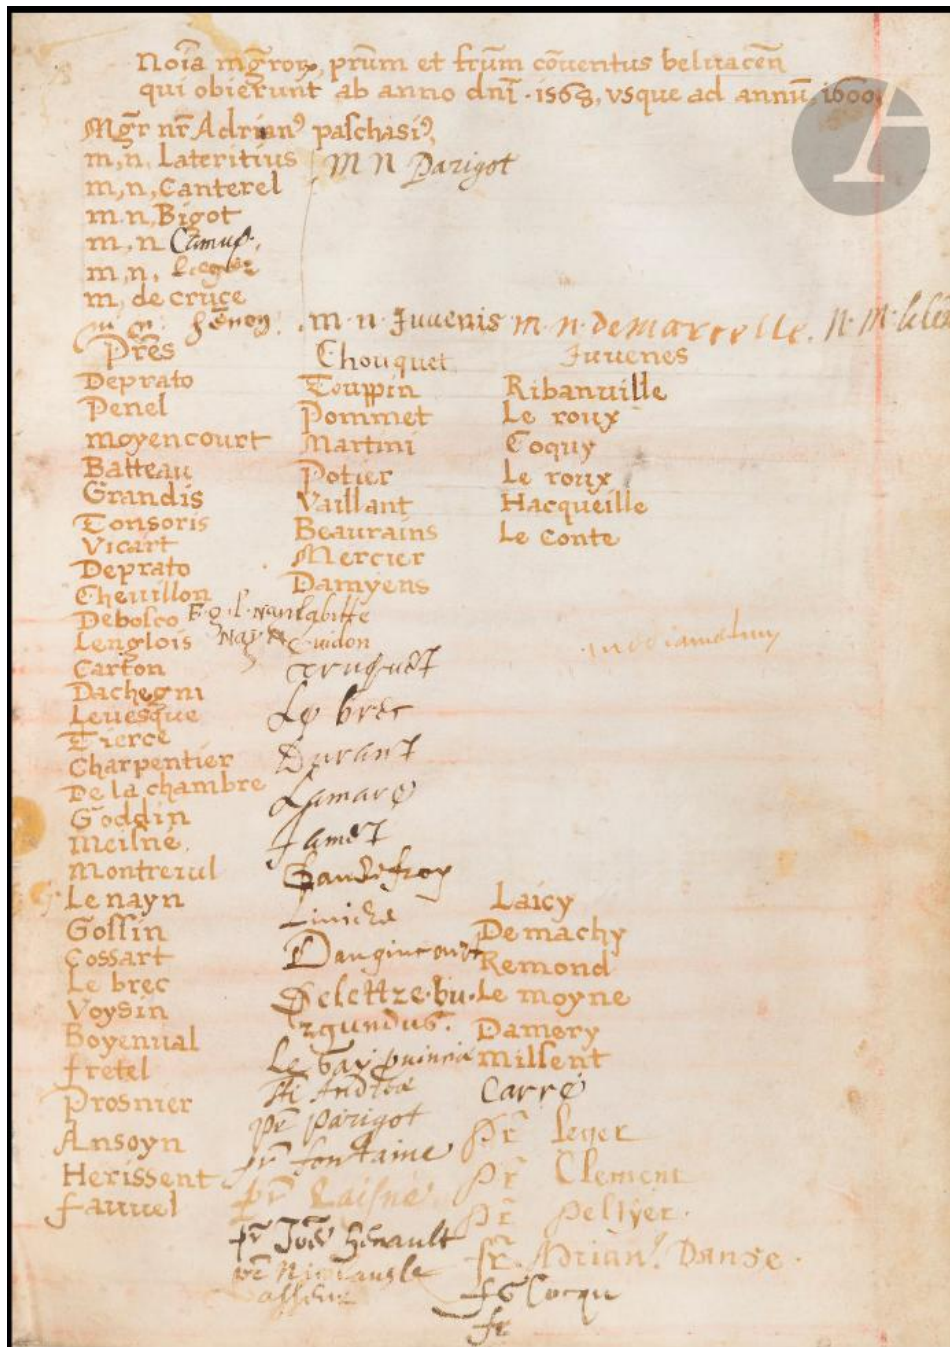 Noīa mḡrorꝝ, prūm et frūm cōuentus beluacēn
qui obierunt ab anno dnī · 1568, vsque ad annū, 1600
Mḡr nr̄ Adrianꝰ paschasiꝰ,
m, n, Lateritius
m, n, Canterel
m. n, Bigot
m, n Camus.
m, n,
m, de cruce
M N Parigot
m. n. . m · n · Juuenis m · n · demarcelle. N. M.
Pres̄
Deprato
Penel
moyencourt
Batteau
Grandis
Tonsoris
Vicart
Deprato
Cheuillon
Debosco
Lenglois
Carton
Dachegni
Leuesque
Tierce
Charpentier
De la chambre
Goddin
Meisne.
Montreuul
Le nayn
Gossin
Cossart
Le brec
Voysin
Boyenual
fretel
Prosnier
Ansoyn
Herissent
fauuel
Chouquet
Touppin
Pommet
Martini
Potier
Vaillant
Beaurains
Mercier
Damyens
Guidon
Truquet
Le brec
Durant
Lamare
Jamet
Gaudefroy
Dangincourt
Delettre · bu ·
rgundus.
Le Gay
Sti Andree
pr̄ Parigot
pr̄ fontaine
pr̄ Laisne
pr̄ Joēs Henault
pr̄
Juuenes
Ribanuille
Le roux
Coquy
Le roux
Hacqueille
Le conte
Laicy
Demachy
Remond
Le moyne
Damery
Millent
Carre
Pr̄ Leger
Pr̄ Clement
Pr̄ Peltÿer ·
fr̄. Adrianꝰ. Danse ·
Cocqu
fr